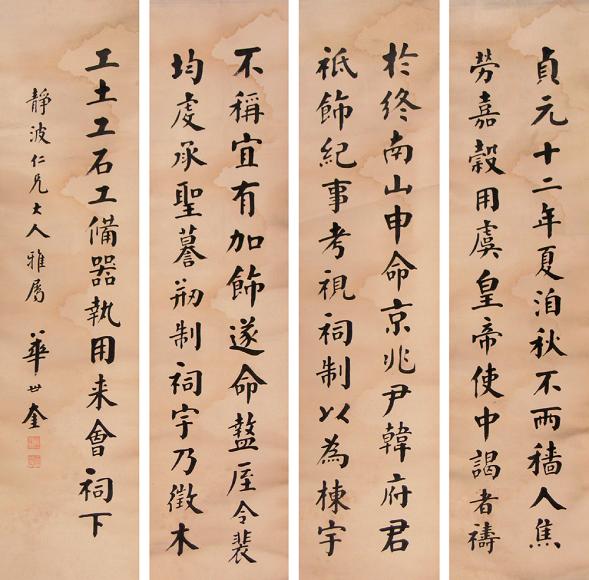 貞元十二年夏洎秋不雨穡人焦
勞嘉穀用虞皇帝使中謁者禱
於終南山申命京兆尹韓府君
祗飾紀事考視祠制以為棟宇
不稱宜有加飾遂命盩厔令裴
均虔承聖謩剏制祠宇乃徵木
工土工石工備器執用来會祠下
靜波仁兄大人雅屬 華世奎